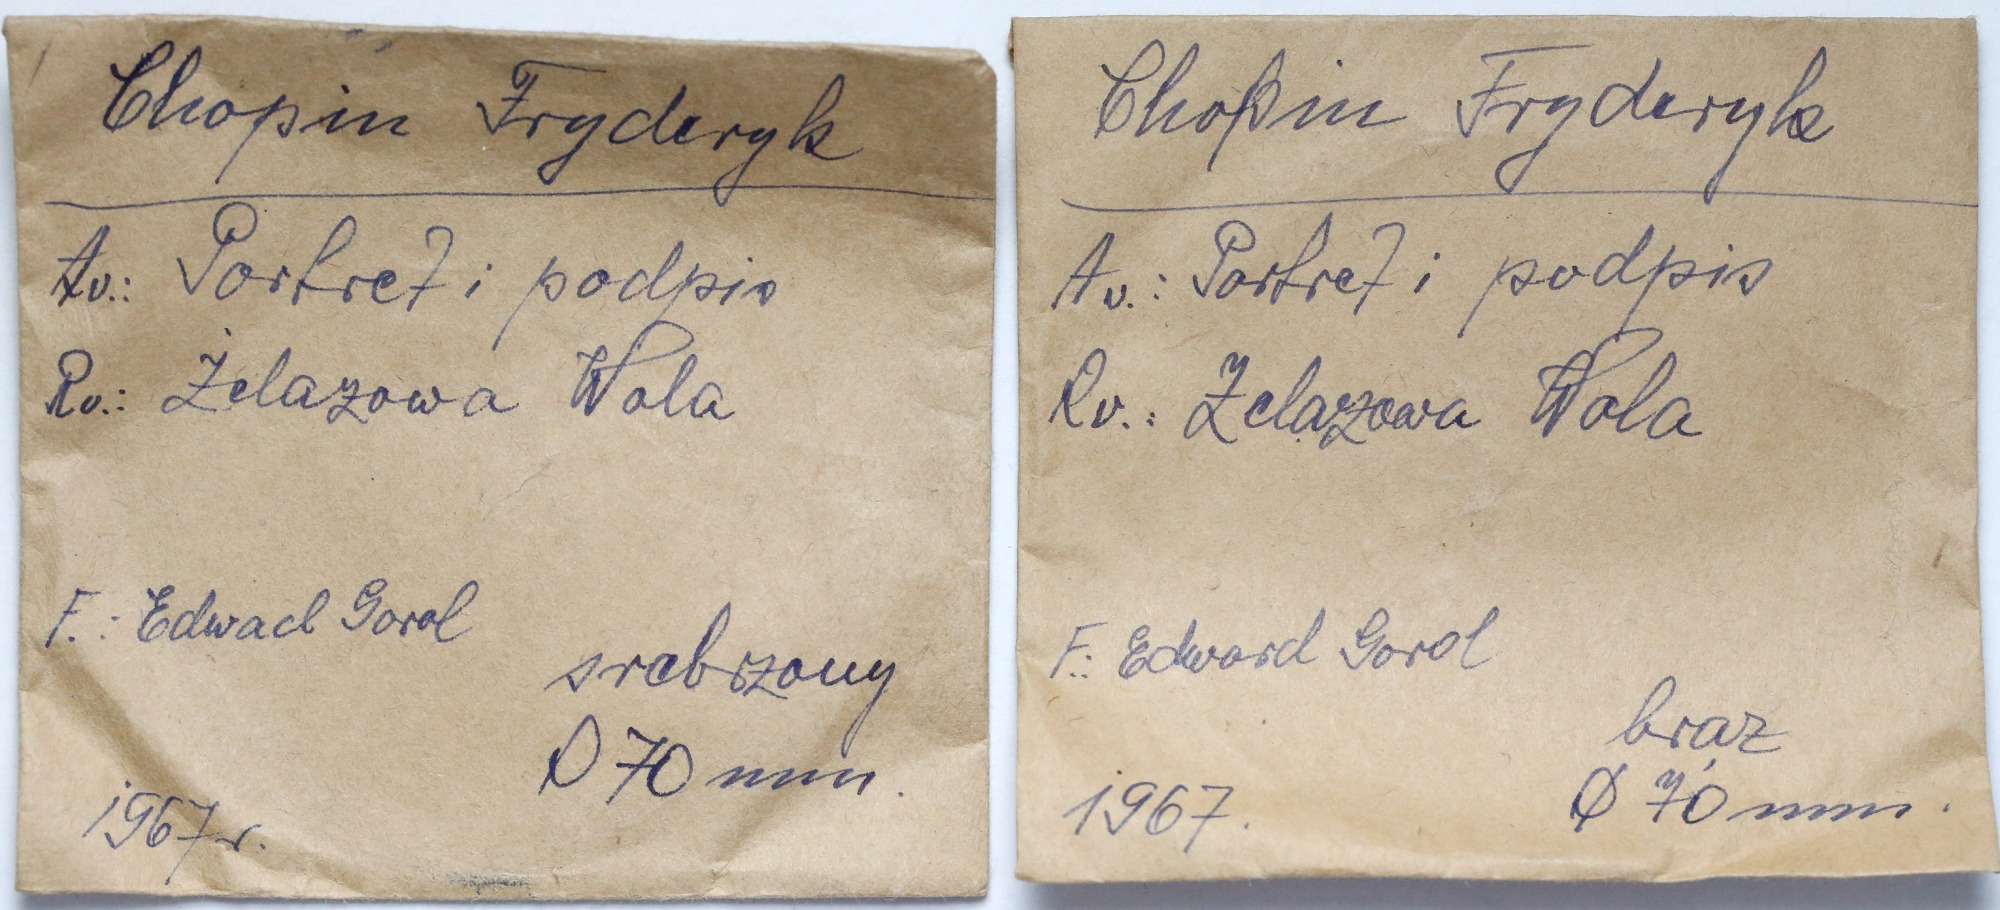 Chopin Fryderyk
Av.: Portret i podpis
Rv.: Żelazowa Wola
F.: Edward Gorol
srebrzony
Ø 70 mm.
1967 r.
Chopin Fryderyk
Av.: Portret i podpis
Rv.: Żelazowa Wola
F.: Edward Gorol
brąz
Ø 70 mm.
1967.